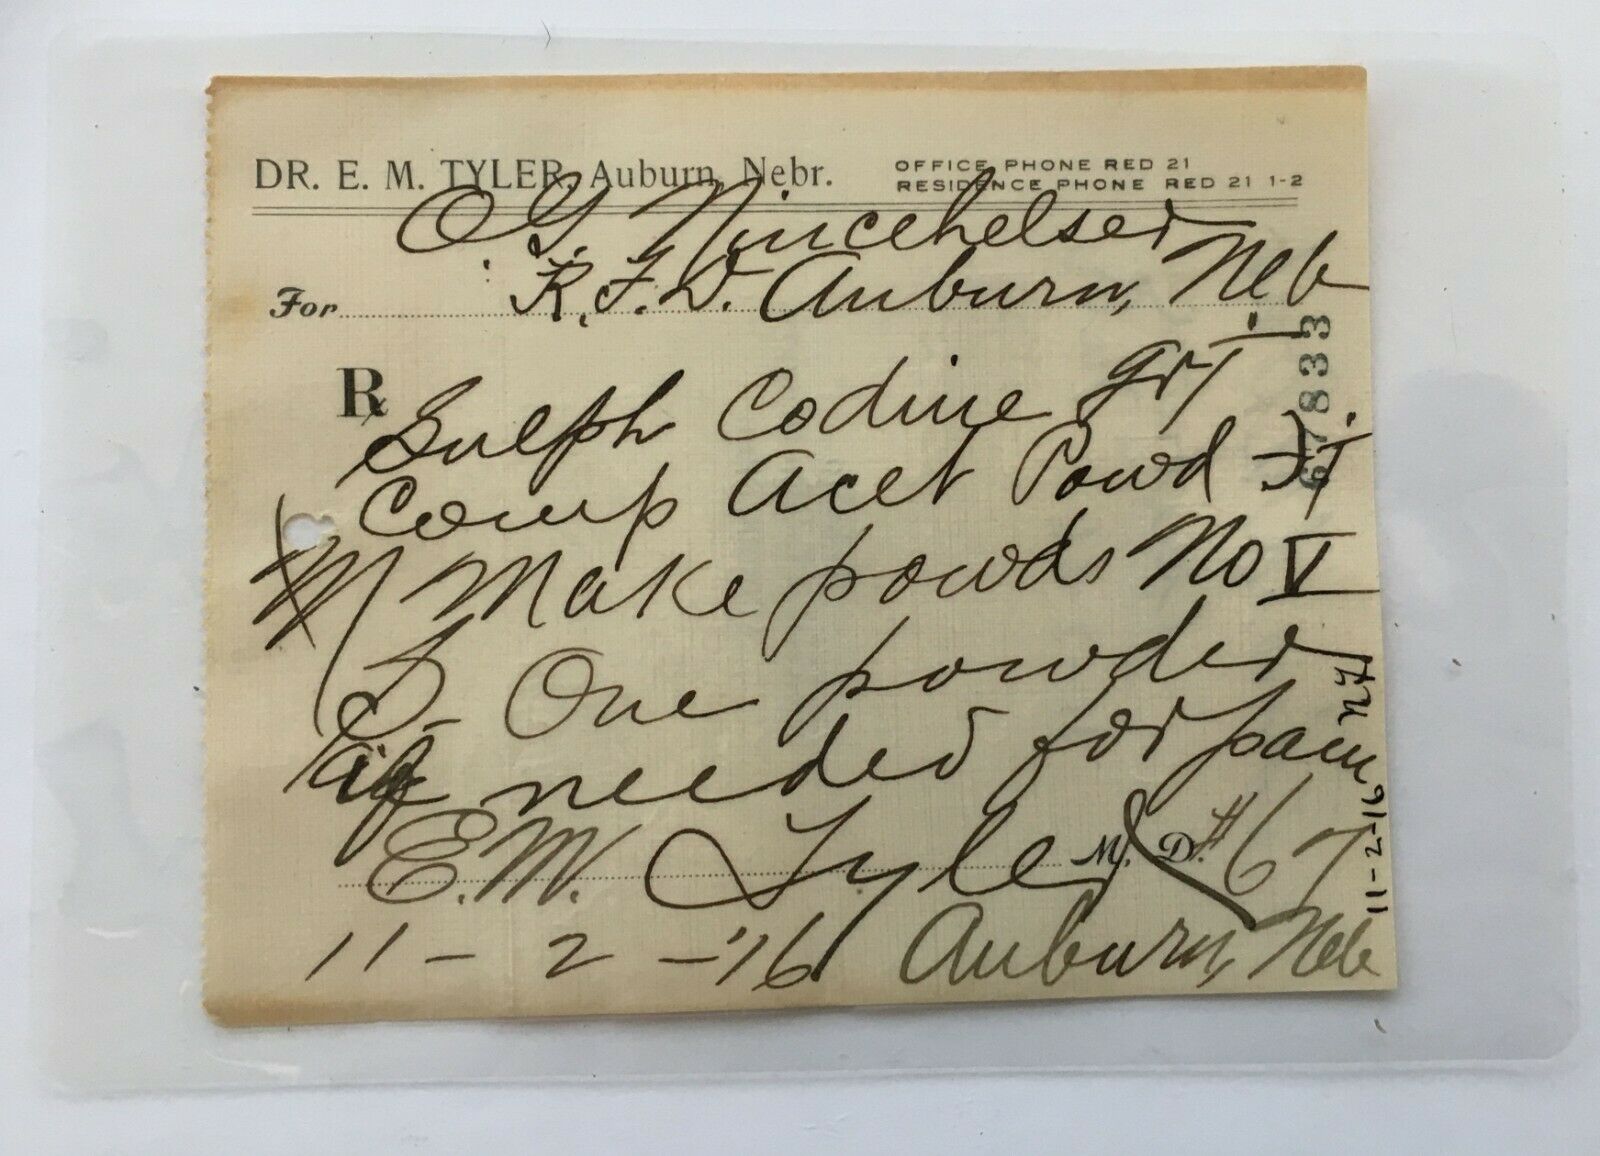 DR. E. M. TYLER, Auburn, Nebr.
OFFICE PHONE RED 21
RESIDENCE PHONE RED 21 1-2
O.G. Nincehelser
For R.F.D. Auburn, Neb
67833
Rx
Sulph Codine gr T
Comp Acet Powd
M Make powds No V
S- One powder
if needed for pain
E.M. Tyler M. D. #67
11-2-'16 Auburn, Neb
11-2-16